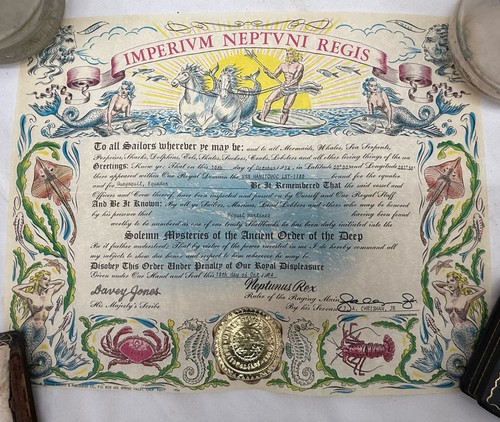 IMPERIVM NEPTVNI REGIS
To all Sailors wherever ye may be: and to all Mermaids, Whales, Sea Serpents,
Porpoises, Sharks, Dolphins, Eels, Skates, Suckers, Crabs, Lobsters and all other living things of the sea
Greetings: Know ye: That on this 18th day of October 1974 in Latitude 00°00' and Longitude
there appeared within Our Royal Domain the USS MANITOWOC LST-1180 bound for the equator and
for Guayaquil, Equador Be It Remembered That the said vessel and
Officers and Crew thereof, have been inspected and passed on by Ourself and Our Royal Staff.
And Be It Known: By all ye Sailors, Marines, Land Lubbers and others who may be honored
by his presence that having been found
worthy to be numbered as one of our trusty Shellbacks he has been duly initiated into the
Solemn Mysteries of the Ancient Order of the Deep
Be it further understood: That by virtue of the power invested in me I do hereby command all
my subjects to show due honor and respect to him wherever he may be.
Disobey This Order Under Penalty of Our Royal Displeasure
Given under Our Hand and Seal this 18th day of Oct 1974
Davey Jones
Neptunus Rex
His Majesty's Scribe
Ruler of the Raging Main
By his Servant